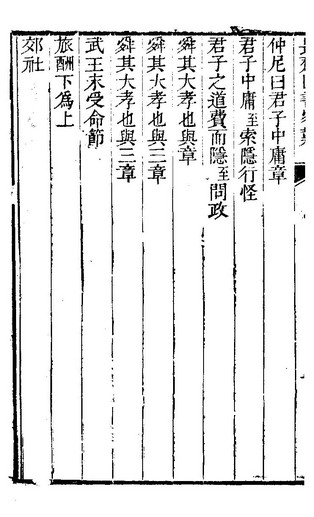 仲尼曰君子中庸章
君子中庸至索隱行怪
君子之道費而隱至問政
舜其大孝也與章
舜其大孝也與三章
舜其大孝也與三章
武王末受命節
旅酬下為上
郊社